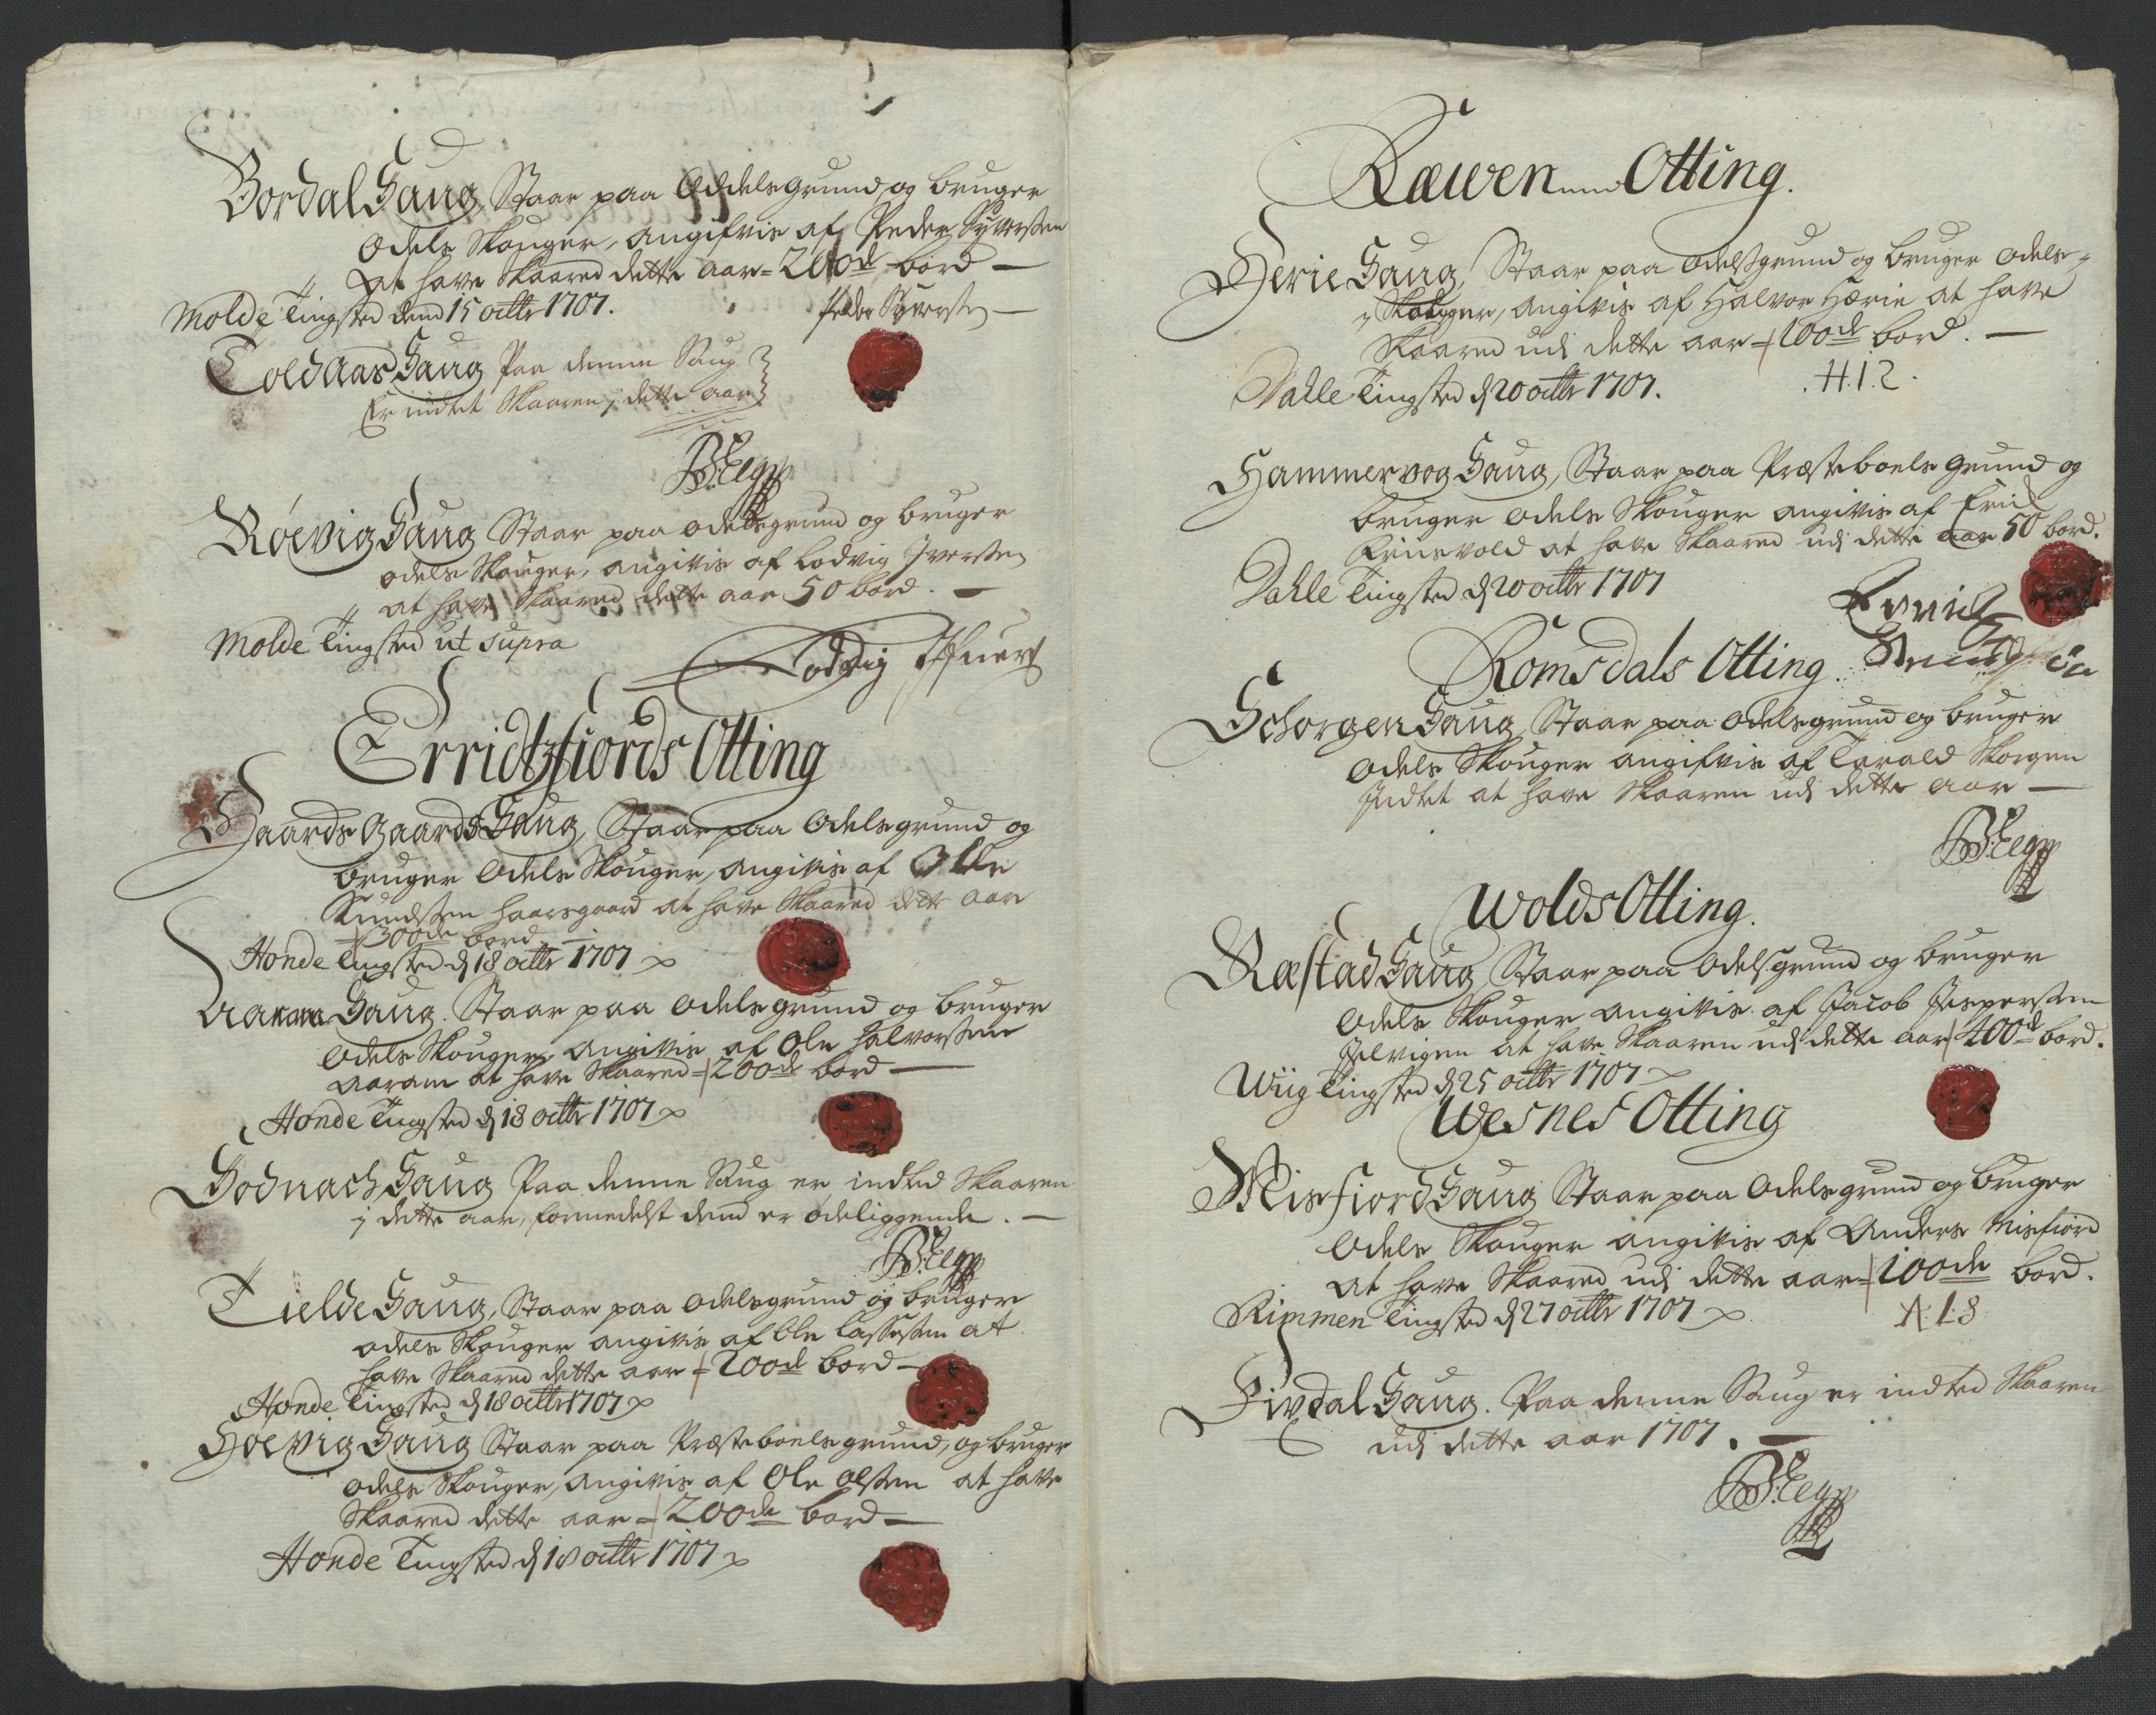 Bordal Saug, Staar paa Oddelsgrund og bruger
Odels Skouger, angifvis af Peder Syversen
at have Skaared dette aar = 200de bord —
Molde Tingsted dend 15 octbr 1707.
Peder Syversen
Toldaas Saug Paa denne Saug
Er indtet Skaaren i dette aar
Røevig Saug Staar paa odelsgrund og bruger
odels Skouger, angivis af Lodvig Iversen
at have Skaared dette aar 50 bord. —
Molde Tingsted ut supra
Lodvig Iffuers
Erridtzfiords Otting
Haards gaards Saug, Staar paa Odelsgrund og
bruger Odels Skouger, angivis af Olle
Knudsen Haarsgaard at have Skaared dette aar
300de bord —
Honde Tingsted d 18 octbr 1707
Saug. Staar paa Odelsgrund og bruger
Odels Skouger, angivis af Ole Halvorsen
Aaram at have Skaared = 200de bord —
Honde Tingsted d 18 octbr 1707
Bodnach Saug Paa denne Saug er indted Skaaren
i dette aar, formedelst dend er ødeliggende. —
Tielde Saug, Staar paa odelsgrund og bruger
odels Skouger angivis af Ole Lassesen at
have Skaared dette aar = 200de bord —
Honde Tingsted d 18 octbr 1707
Hoevig Saug Staar paa Præsteboels grund, og bruger
odels Skouger, angivis af Ole Olsen at have
Skaared dette aar = 200de bord —
Honde Tingsted d 18 octbr 1707
Ræwen Otting.
Herie Saug, Staar paa odelsgrund og bruger odels
Skouger, angivis af Halvor Hærie at have
Skaared udi dette aar = 200de bord. —
Dahle Tingsted d 20 octbr 1707.
H.I.S.
Hammervog Saug, Staar paa Præsteboels grund og
bruger odels Skouger angivis af Erich
at have Skaared udi dette aar 50 bord.
Dahle Tingsted d 20 octbr 1707
Romsdals Otting.
Schorgen Saug, Staar paa odelsgrund og bruger
odels Skouger angifvis af Tarald Skorgen
Indtet at have Skaaren udi dette aar —
Wolds Otting.
Ræstad Saug Staar paa Odelsgrund og bruger
Odels Skouger angivis af Jacob Jespersen
at have Skaaren udi dette aar 400de bord.
Wiig Tingsted d 25 octbr 1707
Wesnes Otting
Misfiord Saug Staar paa Odelsgrund og bruger
Odels Skouger angivis af Anders Misfiord
at have Skaared udi dette aar = 100de bord.
Rimmen Tingsted d 27 octbr 1707
A.I.S
Fixdal Saug. Paa denne Saug er indted Skaaren
udi dette aar 1707. —